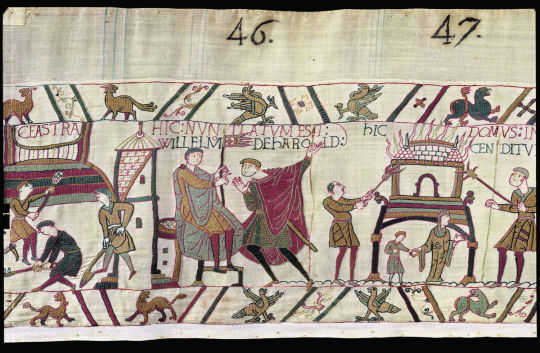 46. 47.
CEASTRA
HIC:NVNTIATVM EST:
WILLELM DE hAROLD:
hIC
DOMVS:IN
CENDITV